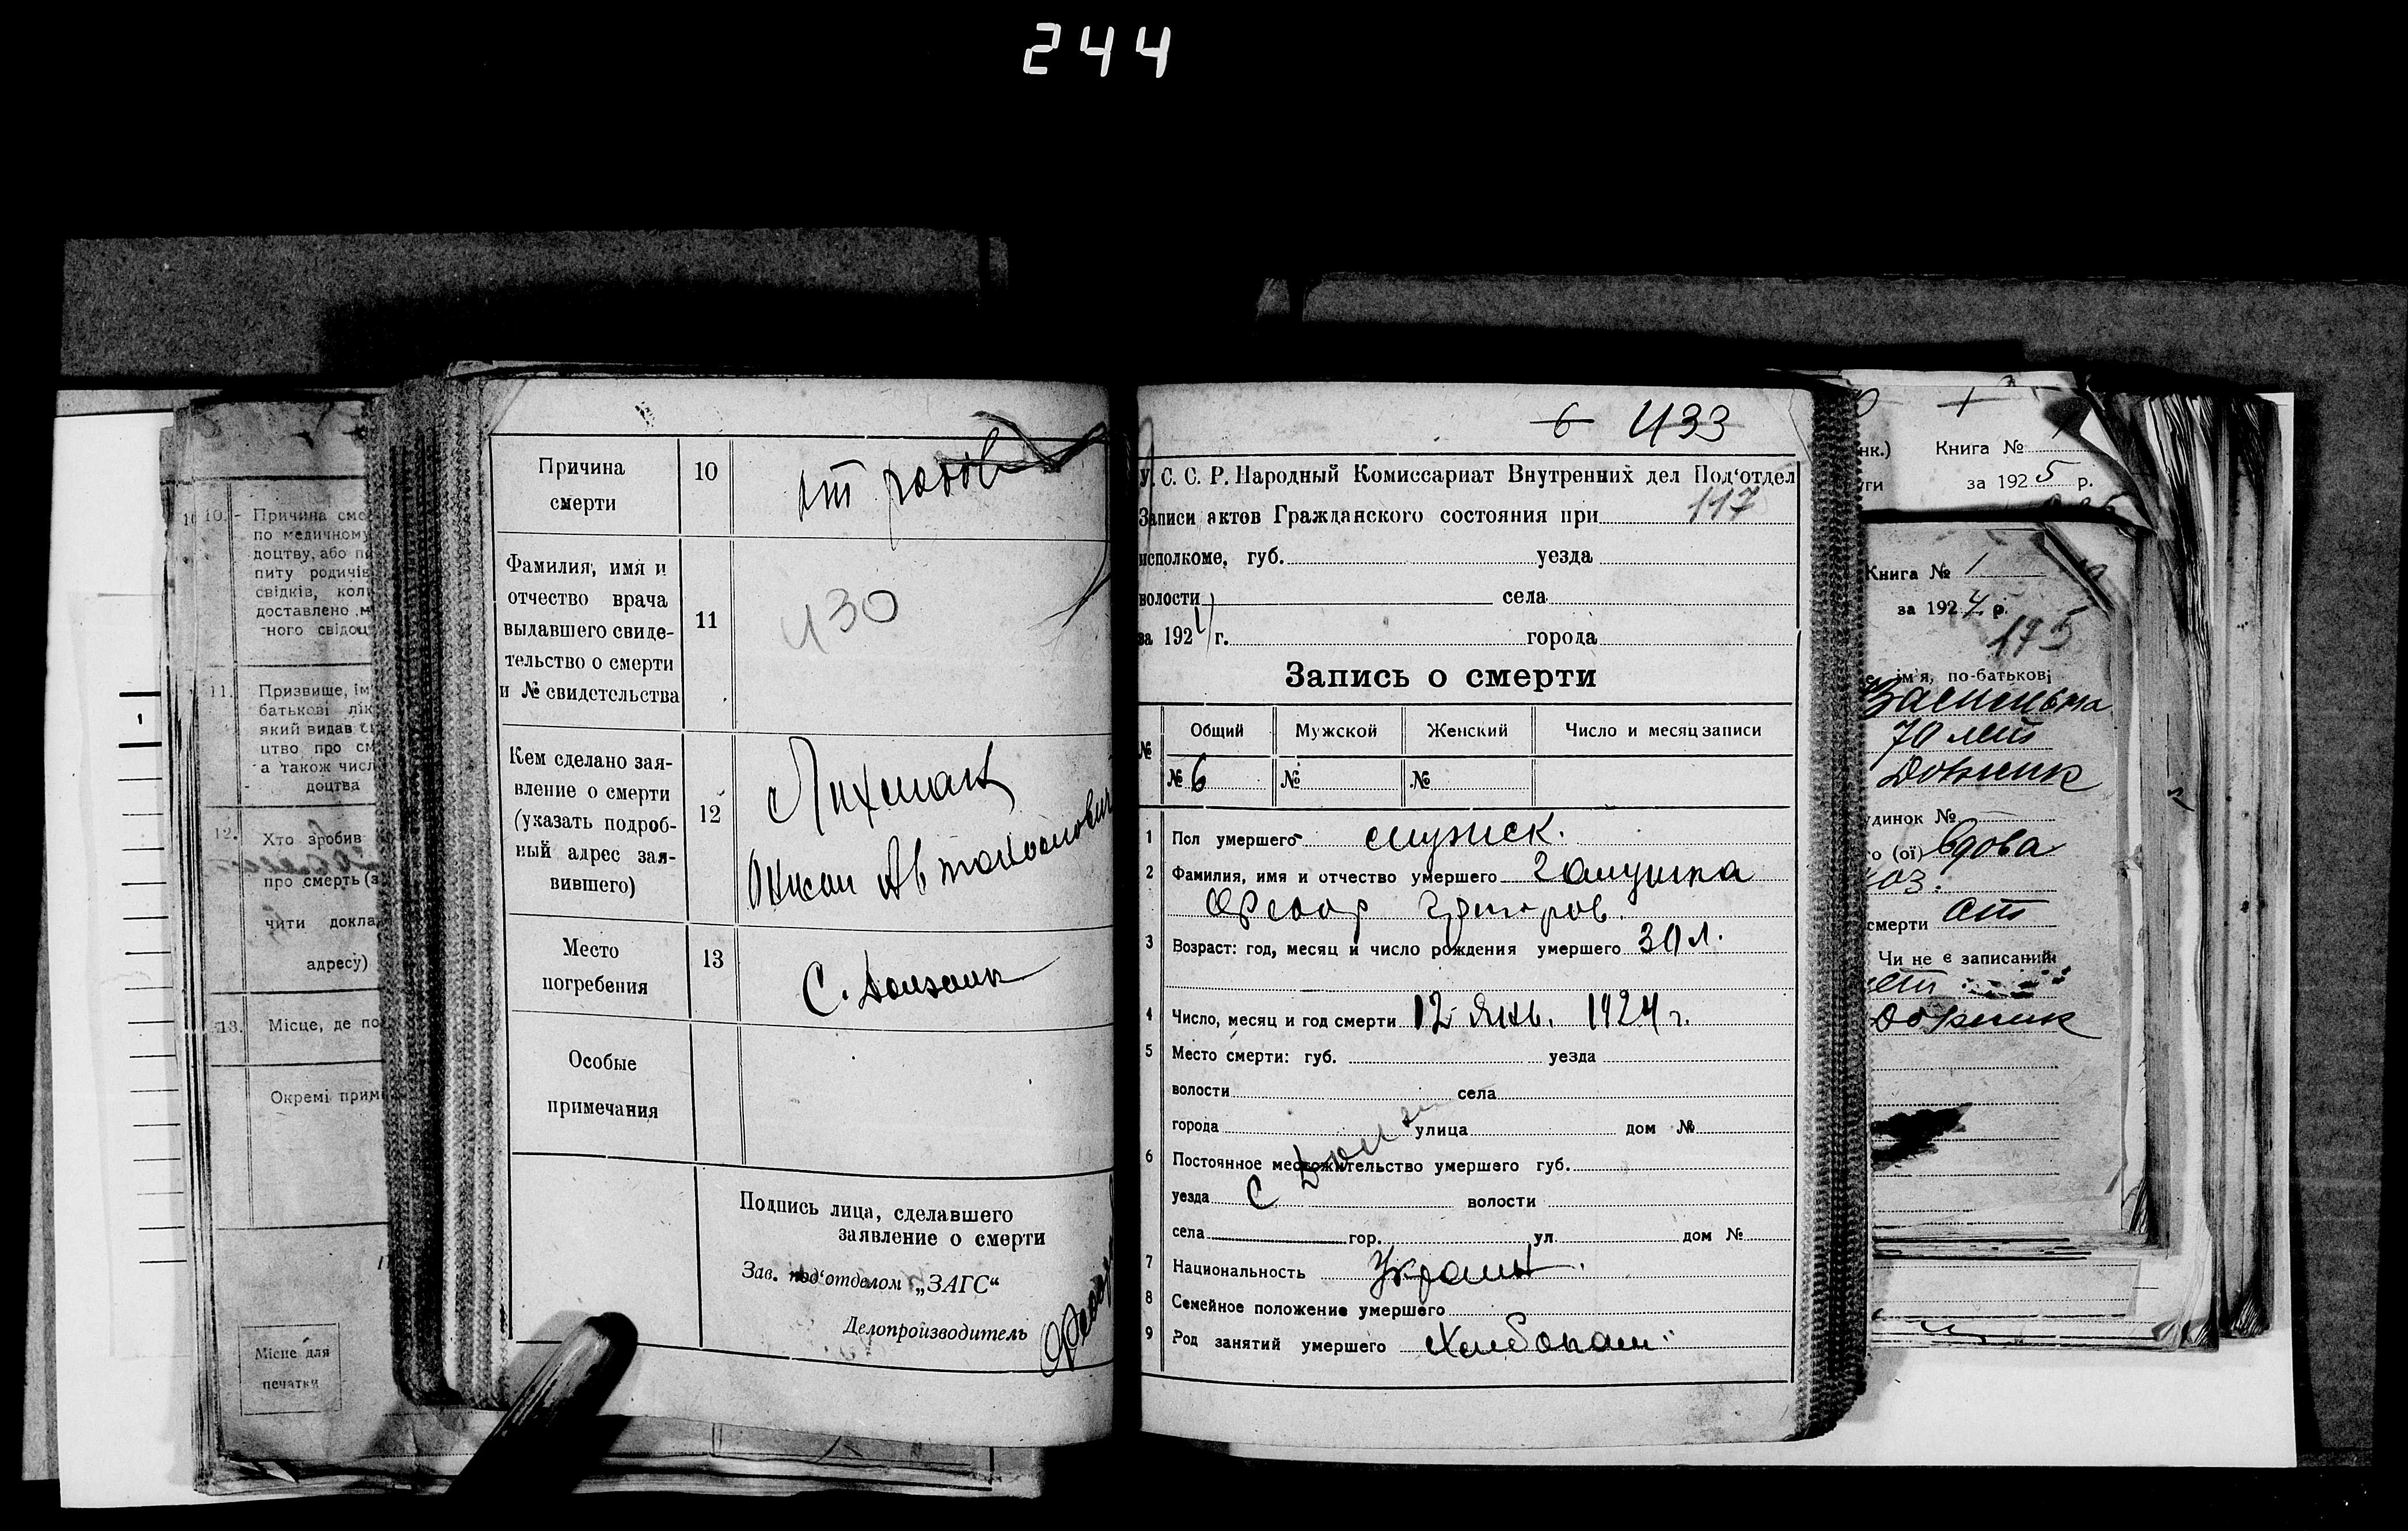 244
Причина смерти
10
от родов
Фамилия, имя и
отчество врача
выдавшего свиде-
тельство о смерти
и № свидетельства
11
430
Кем сделано зая-
вление о смерти
(указать подроб-
ный адрес зая-
вившего)
12
Лихман
Место
погребения
13
С.
Особые
примечания
Подпись лица, сделавшего
заявление о смерти
Зав. под'отделом „ЗАГС“
Делопроизводитель
6 433
У. С. С. Р. Народный Комиссариат Внутренних дел Под'отдел
117
Записи актов Гражданского состояния при
исполкоме, губ. уезда
волости села
за 1924 г. города
Запись о смерти
№ Общий Мужской Женский Число и месяц записи
№ 6 № №
1 Пол умершего мужск.
2 Фамилия, имя и отчество умершего Галушка
Феодор Григоров.
3 Возраст: год, месяц и число рождения умершего 30 л.
4 Число, месяц и год смерти 12 Янв. 1924 г.
5 Место смерти: губ. уезда
волости села
города улица дом №
6 Постоянное местожительство умершего губ.
уезда С волости
села гор. ул. дом №
7 Национальность Украин.
8 Семейное положение умершего
9 Род занятий умершего Хлебопаш
10. Причина сме
по медичному
доцтву, або
питу родичів
свідків, кол
доставлено м
ного свідоц
11. Призвище, ім
батькові лік
який видав
цтво про см
а також числ
доцтва
12. Хто зробив
про смерть (з
чити докла
адресу)
13. Місце, де по
Окремі прим
Місце для
печатки
нк.) Книга №
за 1925 р.
Книга № 1
за 1924 р.
175
ім'я, по-батькові
70 лет
удинок №
го (ої) вдова
смерти от
Чи не є записаний